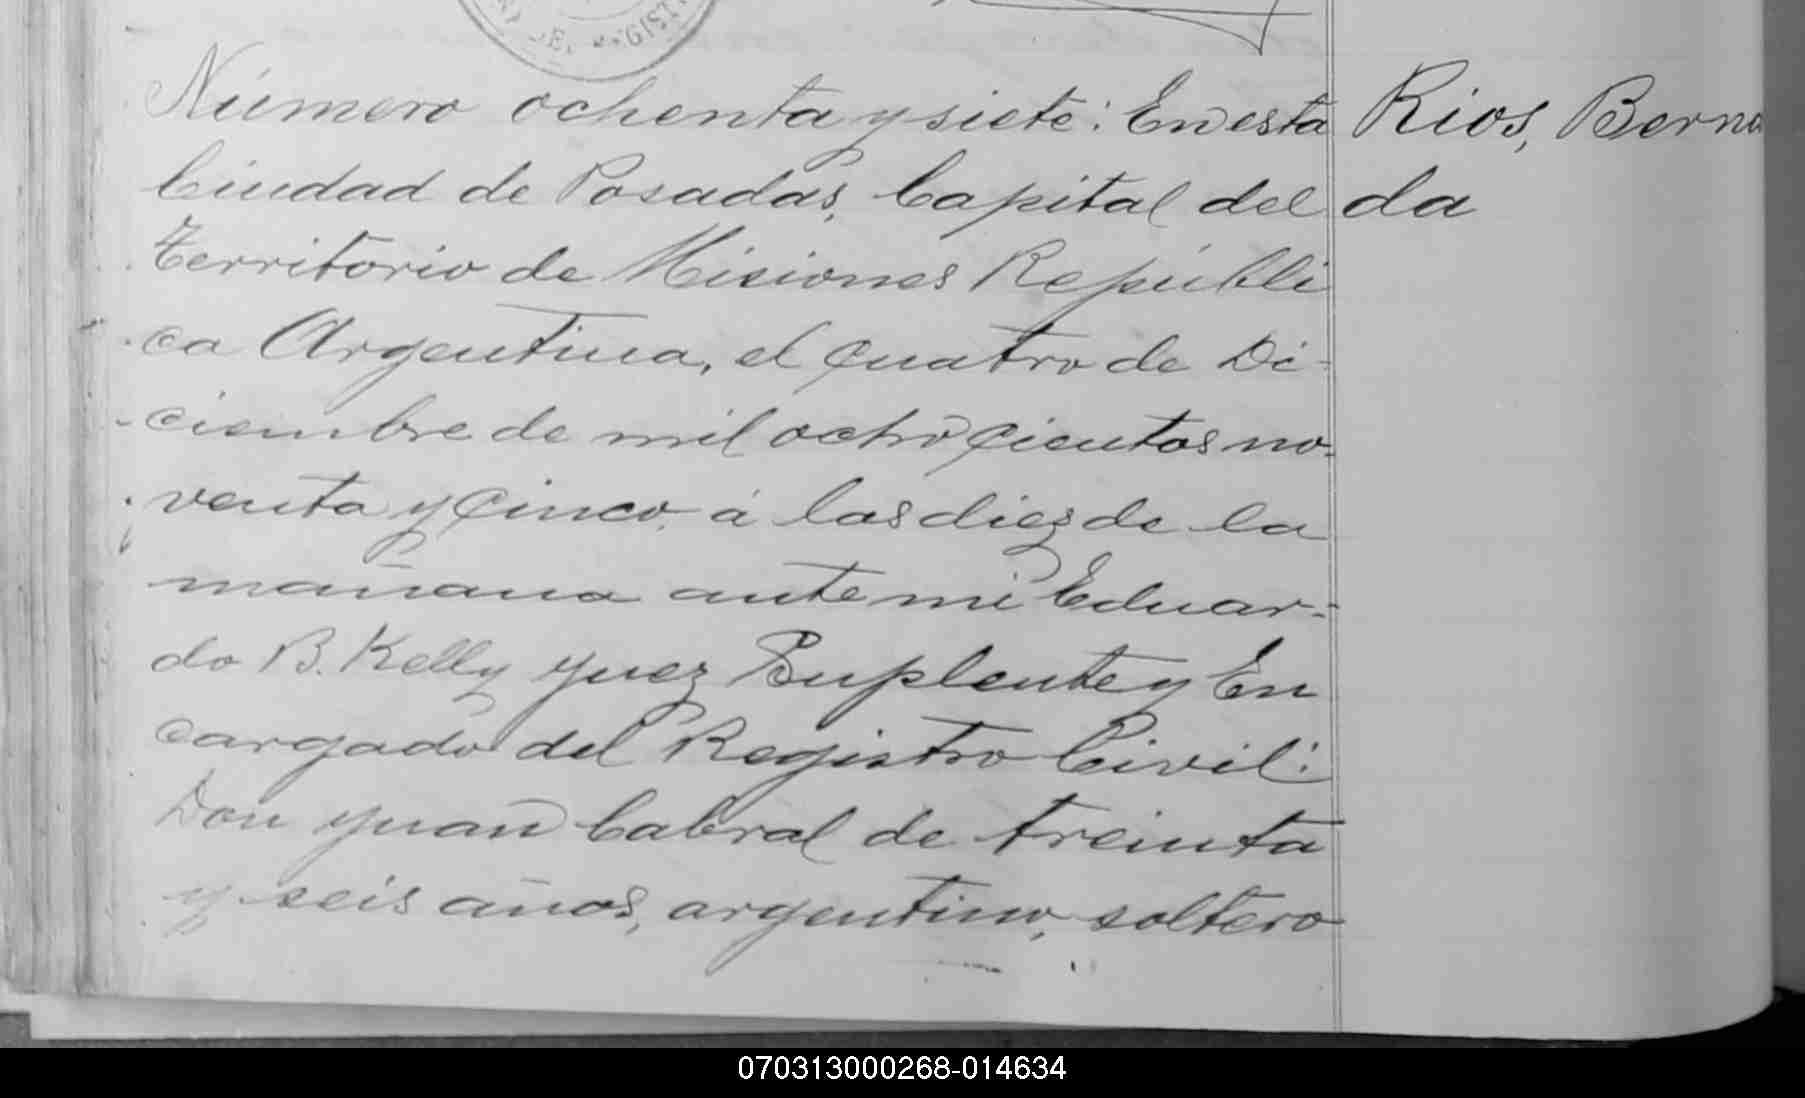 Número ochenta y siete: En esta
Ciudad de Posadas, Capital del
Territorio de Misiones Repúbli
ca Argentina, el cuatro de Di-
ciembre de mil ochocientos no-
venta y cinco, á las diez de la
mañana ante mi Eduar-
do B. Kelly Juez Suplente y En
cargado del Registro Civil:
Don Juan Cabral de treinta
y seis años, argentino, soltero
Rios, Berna
da
070313000268-014634